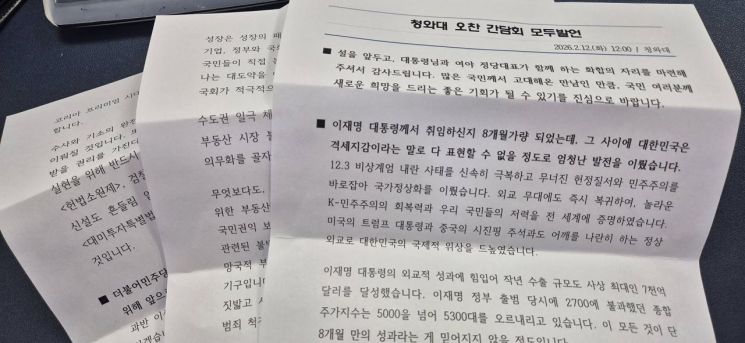 코리아 프리미엄 시대
합니다.
수사와 기소의 완전
이뤄질 것입니다. 또
받을 권리를 가진다
실현을 위해 반드시
<헌법소원제>, 검찰
신설도 흔들림 없
<대미투자특별법
것입니다.
■ 더불어민주당
위해 앞으
과반 이
성장은 성장의 패
기업, 정부와 국
국민들이 직접 눈
나는 대도약을
국회가 적극적으
수도권 일극 체
부동산 시장 불
의무화를 골자
무엇보다도,
위한 부동산
국민권익 보
관련된 불
망국적 부
기구입니다
짓밟고 서
범죄 척
청와대 오찬 간담회 모두발언
2026.2.12.(화) 12:00 / 청와대
■ 설을 앞두고, 대통령님과 여야 정당대표가 함께 하는 화합의 자리를 마련해
주셔서 감사드립니다. 많은 국민께서 고대해온 만남인 만큼, 국민 여러분께
새로운 희망을 드리는 좋은 기회가 될 수 있기를 진심으로 바랍니다.
■ 이재명 대통령께서 취임하신지 8개월가량 되었는데, 그 사이에 대한민국은
격세지감이라는 말로 다 표현할 수 없을 정도로 엄청난 발전을 이뤘습니다.
12.3 비상계엄 내란 사태를 신속히 극복하고 무너진 헌정질서와 민주주의를
바로잡아 국가정상화를 이뤘습니다. 외교 무대에도 즉시 복귀하여, 놀라운
K-민주주의의 회복력과 우리 국민들의 저력을 전 세계에 증명하였습니다.
미국의 트럼프 대통령과 중국의 시진핑 주석과도 어깨를 나란히 하는 정상
외교로 대한민국의 국제적 위상을 드높였습니다.
이재명 대통령의 외교적 성과에 힘입어 작년 수출 규모도 사상 최대인 7천억
달러를 달성했습니다. 이재명 정부 출범 당시에 2700에 불과했던 종합
주가지수는 5000을 넘어 5300대를 오르내리고 있습니다. 이 모든 것이 단
8개월 만의 성과라는 게 믿어지지 않을 정도입니다.